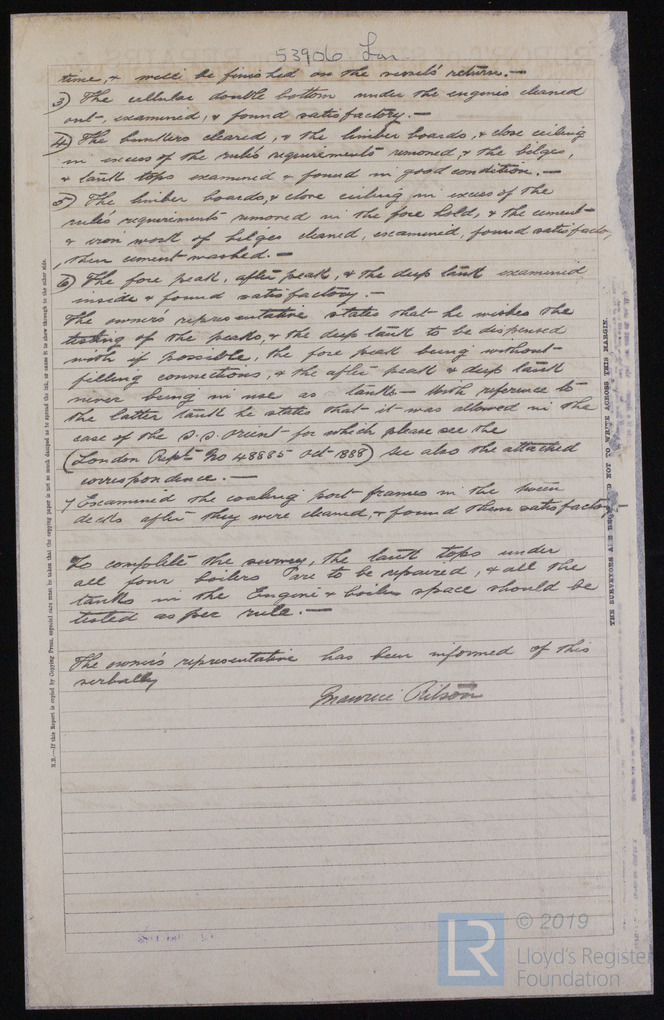 53906 Lon
time, & will be finished on the vessel's return.—
3) The cellular double bottom under the engines cleaned
out, examined, & found satisfactory.—
4) The bunkers cleared, & the limber boards, & close ceiling
in excess of the rule's requirements removed, & the bilges,
& tank tops examined & found in good condition.—
5) The limber boards, & close ceiling in excess of the
rule's requirements removed in the fore hold, & the cement
& iron work of bilges cleaned, examined, found satisfactory,
then cement washed.—
6) The fore peak, after peak, & the deep tank examined
inside & found satisfactory.—
The owner's representative states that he wishes the
testing of the peaks, & the deep tank to be dispensed
with if possible, the fore peak being without
filling connections, & the after peak & deep tank
never being in use as tanks— With reference to
the latter tank he states that it was allowed in the
case of the S.S. Orient for which please see the
(London Rept No 48885 Oct 1888) see also the attached
correspondence.—
7 Examined the coaling port frames in the tween
decks after they were cleaned, & found them satisfactory—
To complete the survey, the tank tops under
all four boilers are to be repaired, & all the
tanks in the Engine & boiler space should be
tested as per rule.—
The owner's representative has been informed of this
verbally
Maurice Ribson
N.B.—If this Report is copied by Copying Press, especial care must be taken that the copying paper is not so much damped as to spread the ink, or cause it to show through to the other side.
THE SURVEYORS ARE REQUESTED NOT TO WRITE ACROSS THIS MARGIN.
© 2019
LR
Lloyd's Register
Foundation